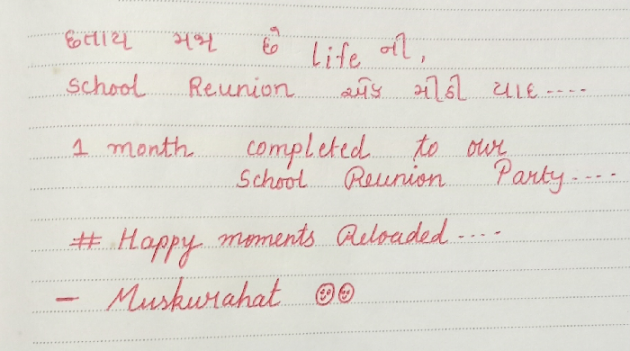 છતાય મજા છે life ની,
School Reunion એક મીઠી યાદ ----
1 month completed to our
School Reunion Party ----
# Happy moments Reloaded ----
- Muskurahat 😊😊